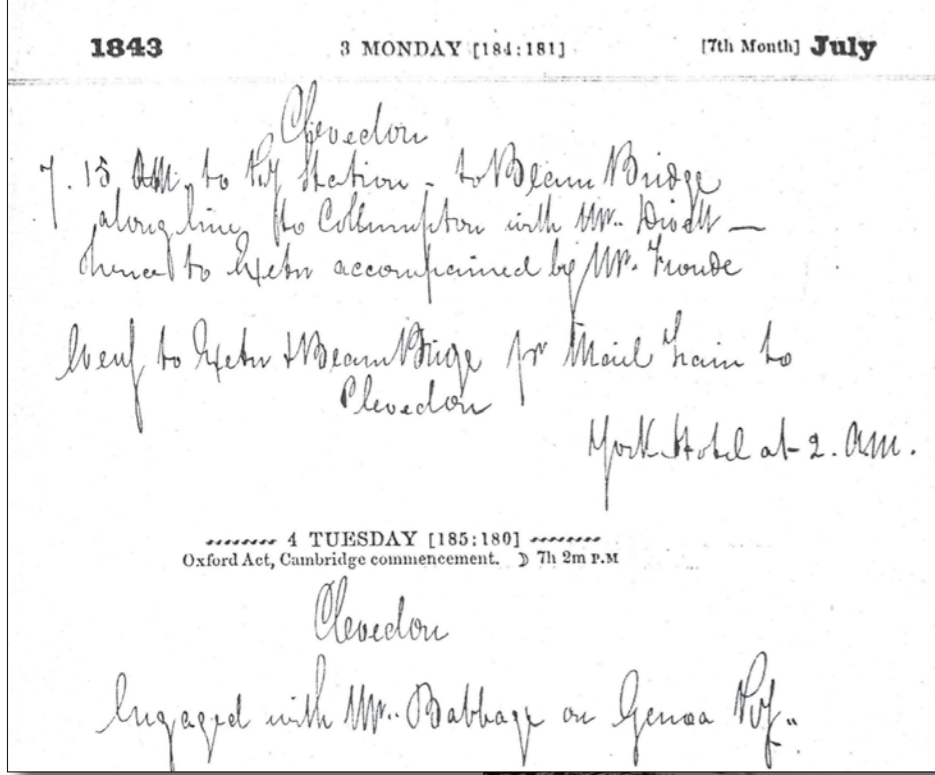 1843 3 MONDAY [184:181] [7th Month] July
Clevedon
7. 15 AM. to Ry Station - to Beam Bridge
along line, to Collumpton with Mr.. Divett —
thence to Exeter accompained by Mr. Froude
to Exeter & Beam Brige for Mail Train to
Clevedon
York Hotel at 2. AM.
4 TUESDAY [185:180]
Oxford Act, Cambridge commencement. ☽ 7h 2m P.M
Clevedon
Engaged with Mr.. Babbage on Genoa Ry..